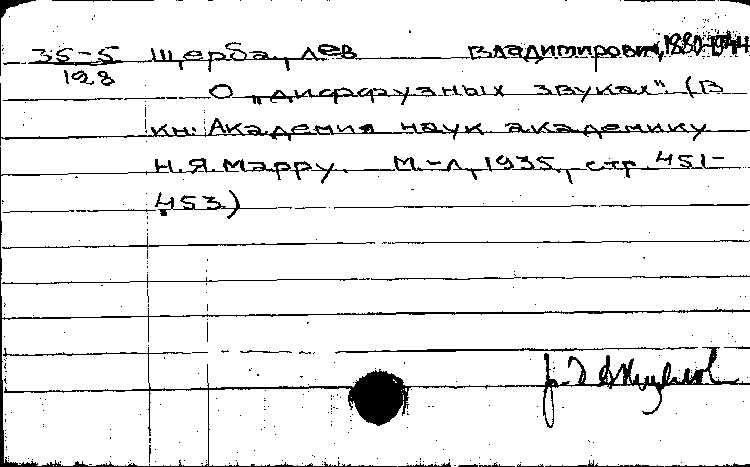 35-5 Щерба, Лев Владимирович, 1880-1944
198
О „диффузных звуках". (В
кн: Академия наук академику
Н.Я. Марру. М.-Л, 1935, стр. 451-
453)